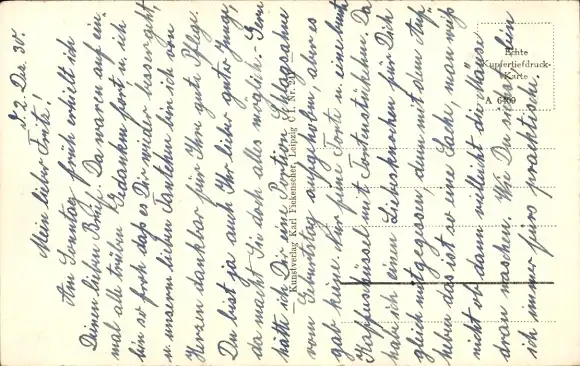 2. Dez. 38.
Mein lieber
Am Sonntag früh erhielt ich
Deinen lieben Brief! Da waren auf ein-
mal alle trüben Gedanken fort u. ich
bin so froh daß es Dir wieder besser geht,
u. unserm lieben Tantchen bin ich von
Herzen dankbar für Ihre gute Pflege.
Du bist ja auch Ihr lieber guter Junge,
da macht Sie doch alles möglich. - Gern
hätte ich Dir eine Portion Schlagsahne
vom Geburtstag aufgehoben, aber es
gab keine. Nur feine Torte u. eine bunte
mit Tortenstückchen. Da
hab ich einen Liebesknochen für Dich
gleich mitgegessen, denn mit dem Auf-
heben das ist so eine Sache, man weiß
nicht ob dann vielleicht die Mäuse
dran naschen. Wie Du siehst bin
ich immer fürs praktische.
Kunstverlag Karl Fickenscher, Leipzig C 1, Nr.
Echte
Kupfertiefdruck-
Karte
A 6409